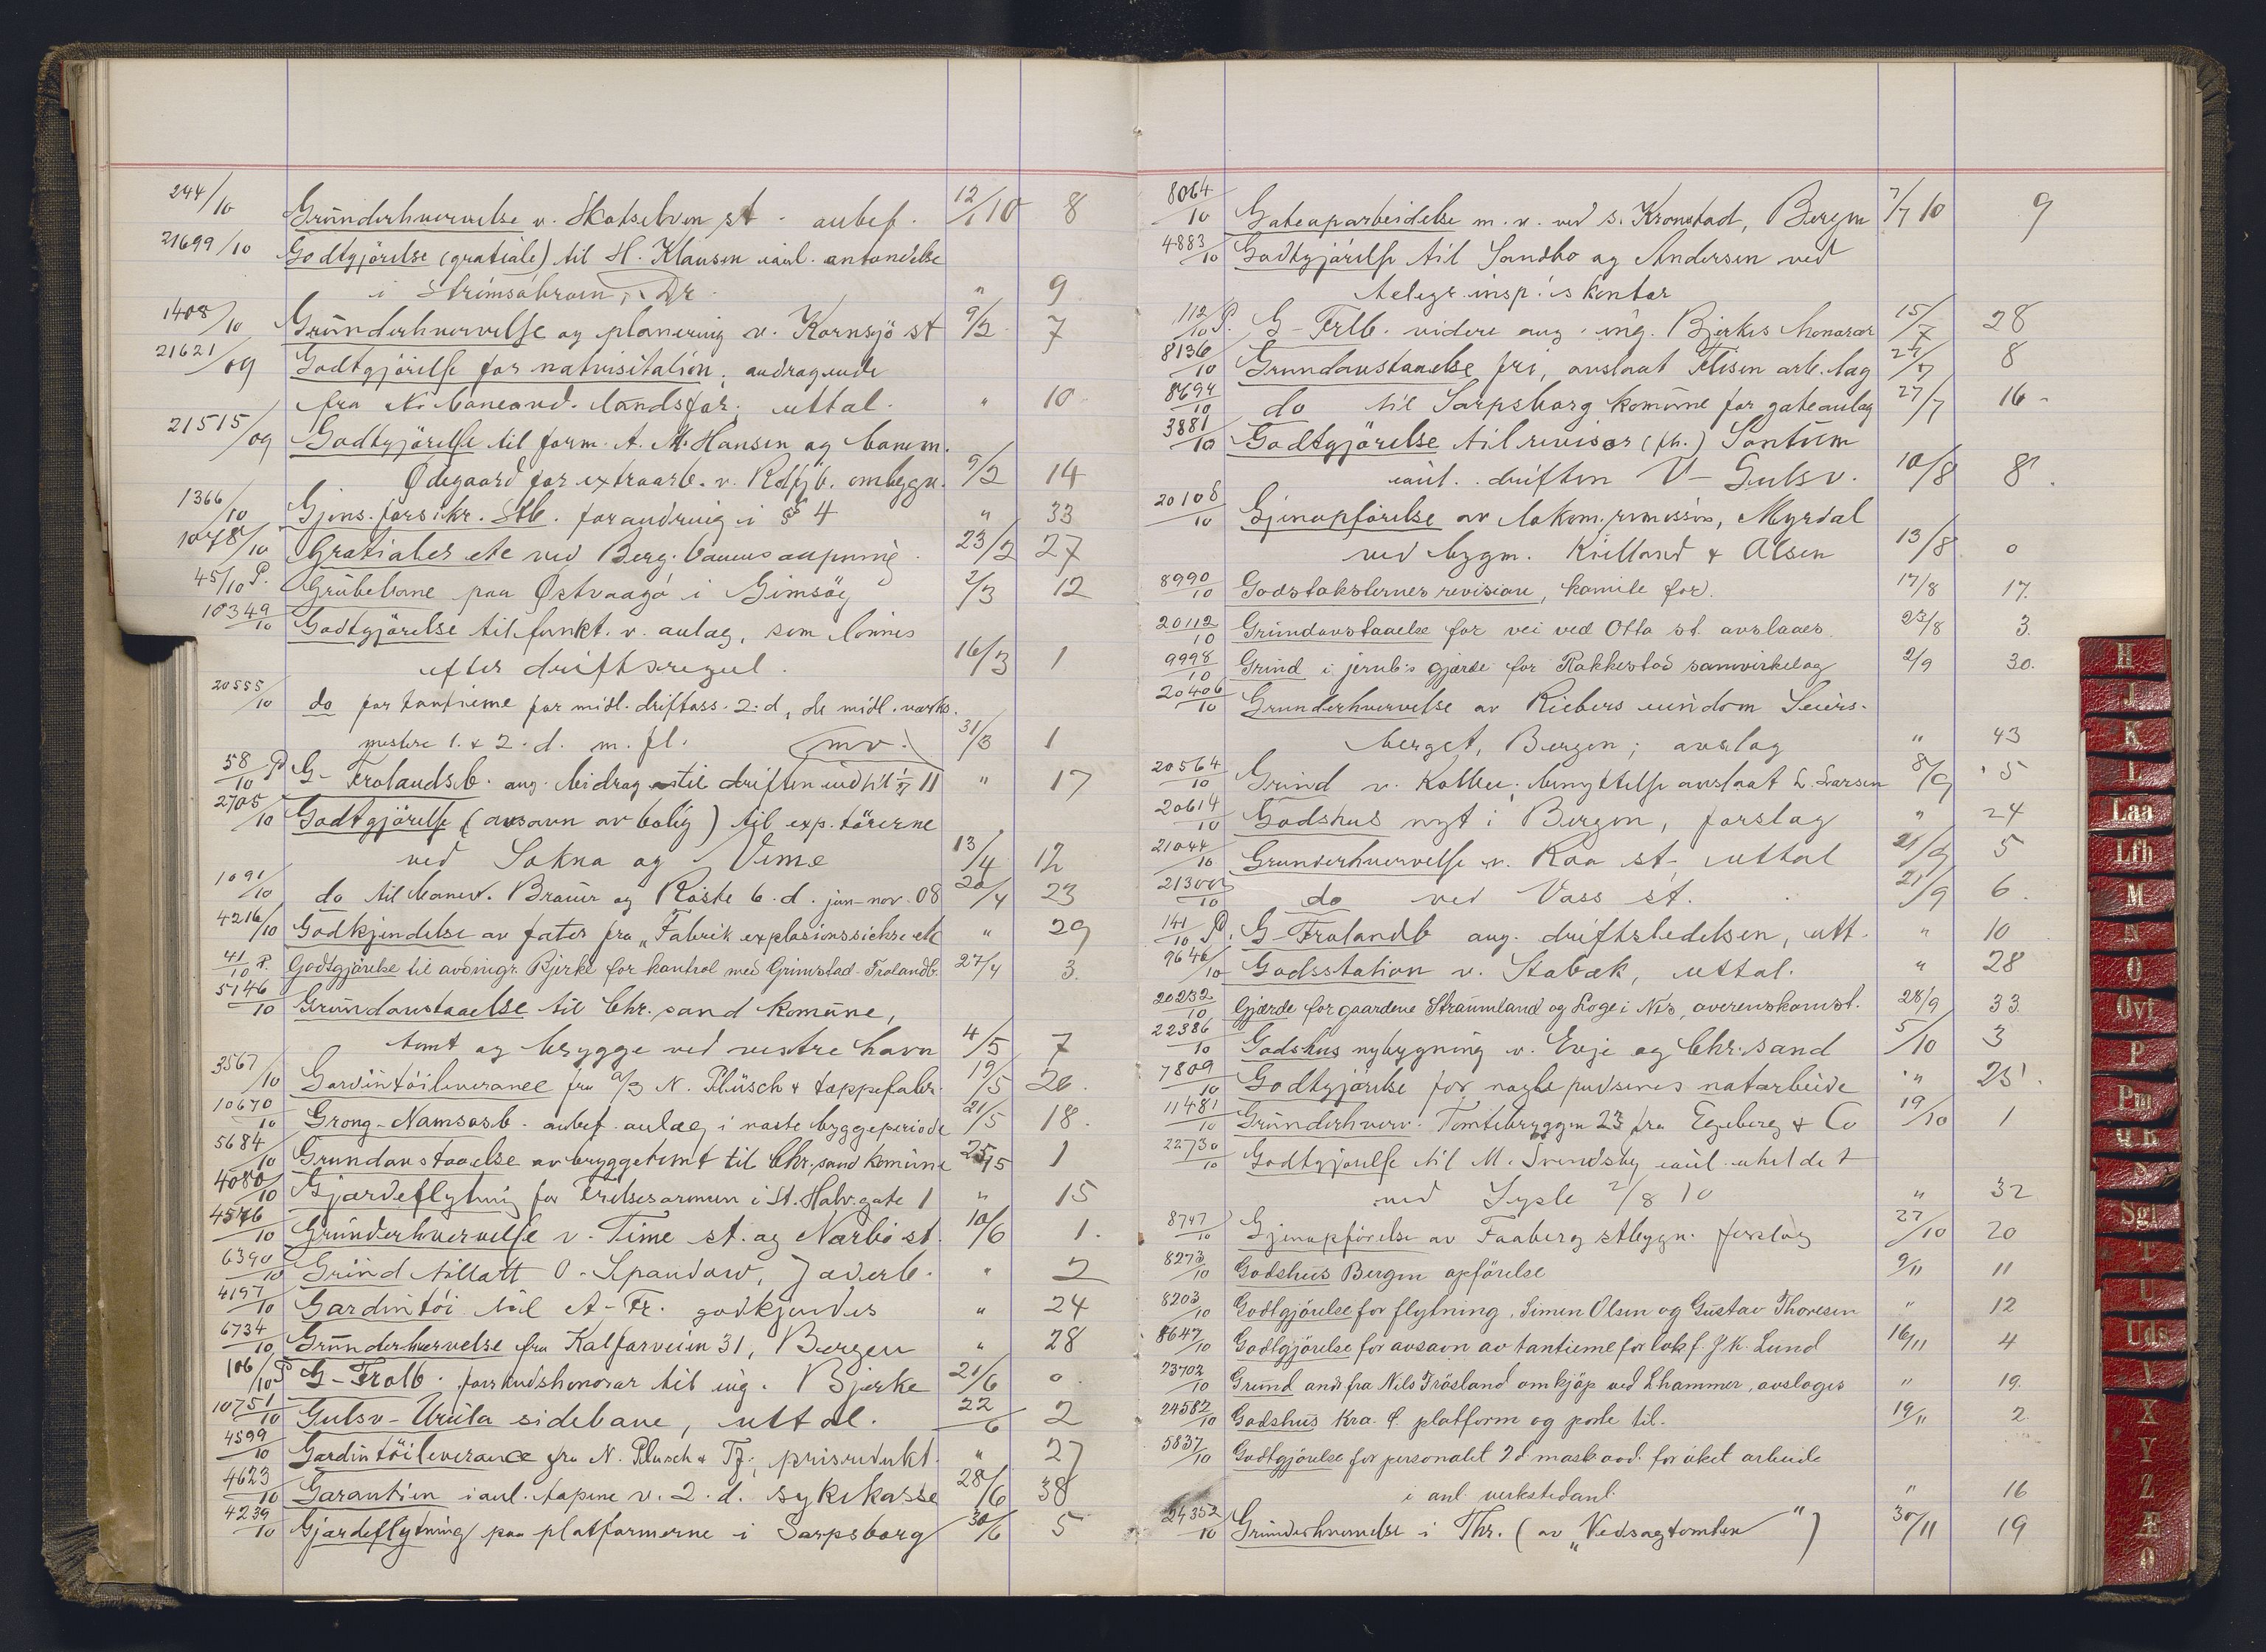 244/10 Grunderhvervelse v. Skotselven st - anbef. 12/1 10 8
21699/10 Godtgjörelse (gratiale) til H. Klausen i anl. antændelse
i Strömsöbroen, Dr. " 9
1408/10 Grunderhvervelse og planering v. Kornsjö st 9/2 7
21621/09 Godtgjörelse for natvisitation, andragende
fra N. baneand. landsfor. uttal. " 10
21515/09 Godtgjörelse til form. A. M. Hansen og banem.
Ødegaard for extraarb. v. ombygn. 9/2 14
1366/10 Gjens. forsikr. Stb. forandring i § 4 " 33
1078/10 Gratialer etc ved Berg. banens aapning 23/2 27
45/10 P. Grubebane paa Østvaagö i Gimsöy 2/3 12
10349/10 Godtgjörelse til funkt. v. anlæg, som lönnes
efter driftsregul. 16/3 1
20555/10 do for tantieme for midl. driftass. 2. d, de midl. verks.
mestere 1. & 2. d. m. fl. mv. 31/3 1
58/10 P G- Frolandsb. ang. bidrag til driften indtil 1/7 11 " 17
2705/10 Godtgjörelse (avsavn av bolig) til exp. törerne
ved Sokna og Veme 13/4 12
1091/10 do til banev. Braun og Röste 6. d. jan-nov. 08 20/4 23
4216/10 Godkjendelse av fater fra „Fabrik explosionssichre etc " 29
41/10 P. Godtgjörelse til avd.ingr. Bjerke for kontrol med Grimstad-Frolandb. 27/4 3.
5146/10 Grundavstaaelse til Chr.sand komune,
tomt og brygge ved vestre havn 4/5 7
3567/10 Gardintöileverance fra a/s N. Plüsch & tæppefabr. 19/5 26
10670/10 Grong-Namsosb. anbef. anlæg i næste byggeperiode 21/5 18.
5684/10 Grundavstaaelse av bryggetomt til Chr.sand komune 25/5 1
4080/10 Gjærdeflytning for Frelsesarmeen i St. Halv. gate 1 " 15
4576/10 Grunderhvervelse v. Time st. og Nærbö st. 10/6 1.
6390/10 Grind tillatt O. Spandow, Jæderb. " 2
4197/10 Gardintöi til A-Fr. godkjendes " 24
6734/10 Grunderhvervelse fra Kalfarveien 31, Bergen " 28
106/10 P G-Frolb. forskudshonorar til ing. Bjerke 21/6 0
10751/10 Gulsv-Uvula sidebane, uttal. 22/6 2
4599/10 Gardintöileverance fra N. Plusch & Tf., prisredukt. " 27
4623/10 Garantien i anl. tapene v. 2. d. sykekasse 28/6 38
4239/10 Gjærdeflytning paa platformerne i Sarpsborg 30/6 5
8064/10 Gateoparbeidelse m. v. ved s. Kronstad, Bergen 7/7 10 9
4883/10 Godtgjörelse til Sandbo og Andersen ved
telegr.insp.'s kontor
112/10 P. G-Frlb. videre ang. ing. Bjerkes honorar 15/7 28
8136/10 Grundavstaaelse fri, avslaat Flisen arb.lag 27/7 8
8694/10 do til Sarpsborg komune for gateanlæg 27/7 16
3881/10 Godtgjörelse til revisor (fh.) Sontum
i anl. driften V-Gulsv. 10/8 8.
20108/10 Gjenopförelse av lokom.remissen, Myrdal
ved bygm. Kielland & Olsen 13/8 0
8990/10 Godstaksternes revision, komite for). 17/8 17.
20112/10 Grundavstaaelse for vei ved Otta st. avslaaes. 23/8 3.
9998/10 Grind i jernb's gjærde for Rakkestad samvirkelag 2/9 30.
20406/10 Grunderhvervelse av Riebers eiendom Seiers-
berget, Bergen; avslag " 43
20564/10 Grind v. Kolbu; benyttelse avslaat L. Larsen 8/9 5
20614/10 Godshus nyt i Bergen, forslag " 24
21044/10 Grunderhvervelse v. Roa st. uttal 21/9 5
21300/10 do ved Voss st. 21/9 6.
141/10 P. G-Frolandb ang. driftsledelsen, utt. " 10
9646/10 Godsstation v. Stabæk, uttal. " 28
20232/10 Gjærde for gaardene Straumland og Loge i Nes, overenskomst. 28/9 33.
22386/10 Godshus nybygning v. Evje og Chr.sand 5/10 3
7809/10 Godtgjörelse for nogle pudseres natarbeide " 25.
11481/10 Grunderhverv. Tomtebryggen 23 fra Egeberg & Co 19/10 1
22730/10 Godtgjörelse til M. Svendsby i anl. uheldet
ved Lysle 2/8 10 " 32
8747/10 Gjenopförelse av Faaberg st.bygn. forslag 27/10 20
8273/10 Godshus Bergen opförelse 9/11 11
8203/10 Godtgjörelse for flytning, Simen Olsen og Gustav Thoresen " 12
8647/10 Godtgjörelse for avsavn av tantieme for lokf. J. K. Lund 16/11 4
23702/10 Grund andr fra Nils Frösland om kjöp ved Lhammer, avslages " 19.
24582/10 Godshus Kra. Ø. platform og porte til. 19/11 2.
5837/10 Godtgjörelse for personalet 2 d. mask.avd. for öket arbeide
i anl. verkstedanl. " 16
24352/10 Grunderhvervelse i Thr. (av „Vedsagtomten") 30/11 19
H
J
K
L
Laa
Lfh
M
N
O
Ovf
P
Pm
Q R
S
Sgl
T
U
Uds
V
X
Y
Z
Æ
Ø